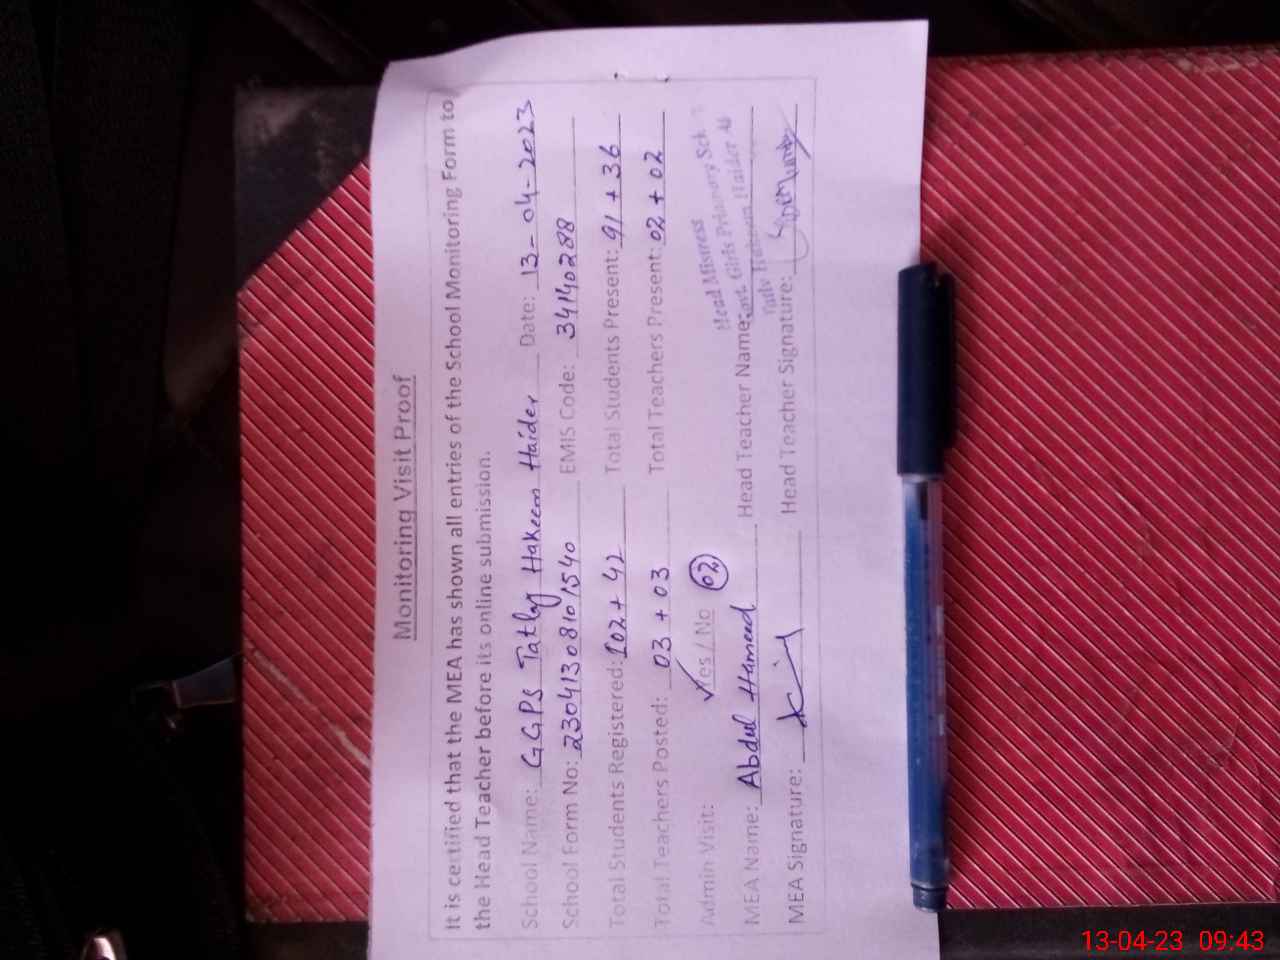 Monitoring Visit Proof
It is certified that the MEA has shown all entries of the School Monitoring Form to
the Head Teacher before its online submission.
School Name: GGPS Tatly Hakeem Haider Date: 13-04-2023
School Form No: 23041308101540 EMIS Code: 34140288
Total Students Registered: 102+ 42 Total Students Present: 91 + 36
Total Teachers Posted: 03 + 03 Total Teachers Present: 02 + 02
Admin Visit: Yes / No 02
Head Mistress
Govt. Girls Primary Sch
Haider
MEA Name: Abdul Hameed Head Teacher Name:
MEA Signature: Head Teacher Signature:
13-04-23 09:43